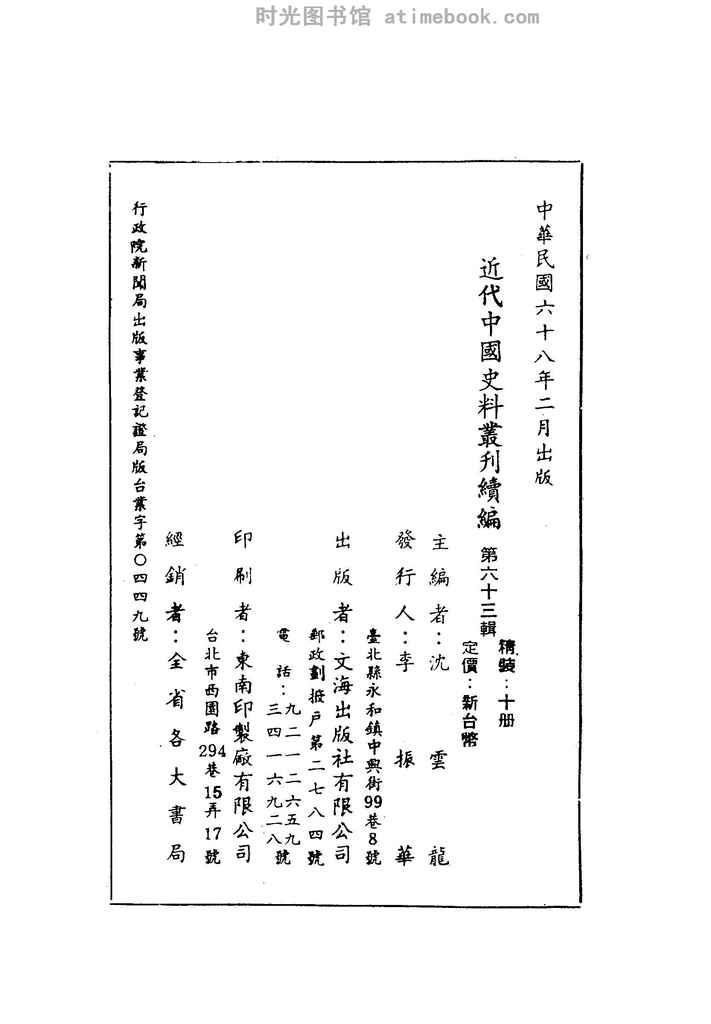 时光图书馆 atimebook.com
中華民國六十八年二月出版
近代中國史料叢刊續編 第六十三輯
精裝：十册
定價：新台幣
主編者：沈雲龍
發行人：李振華
臺北縣永和鎮中興街99巷8號
出版者：文海出版社有限公司
郵政劃撥戶第二七八四號
電話：九二一二六五九
三四一六九二八號
印刷者：東南印製廠有限公司
台北市西園路294巷15弄17號
經銷者：全省各大書局
行政院新聞局出版事業登記證局版台業字第〇四四九號